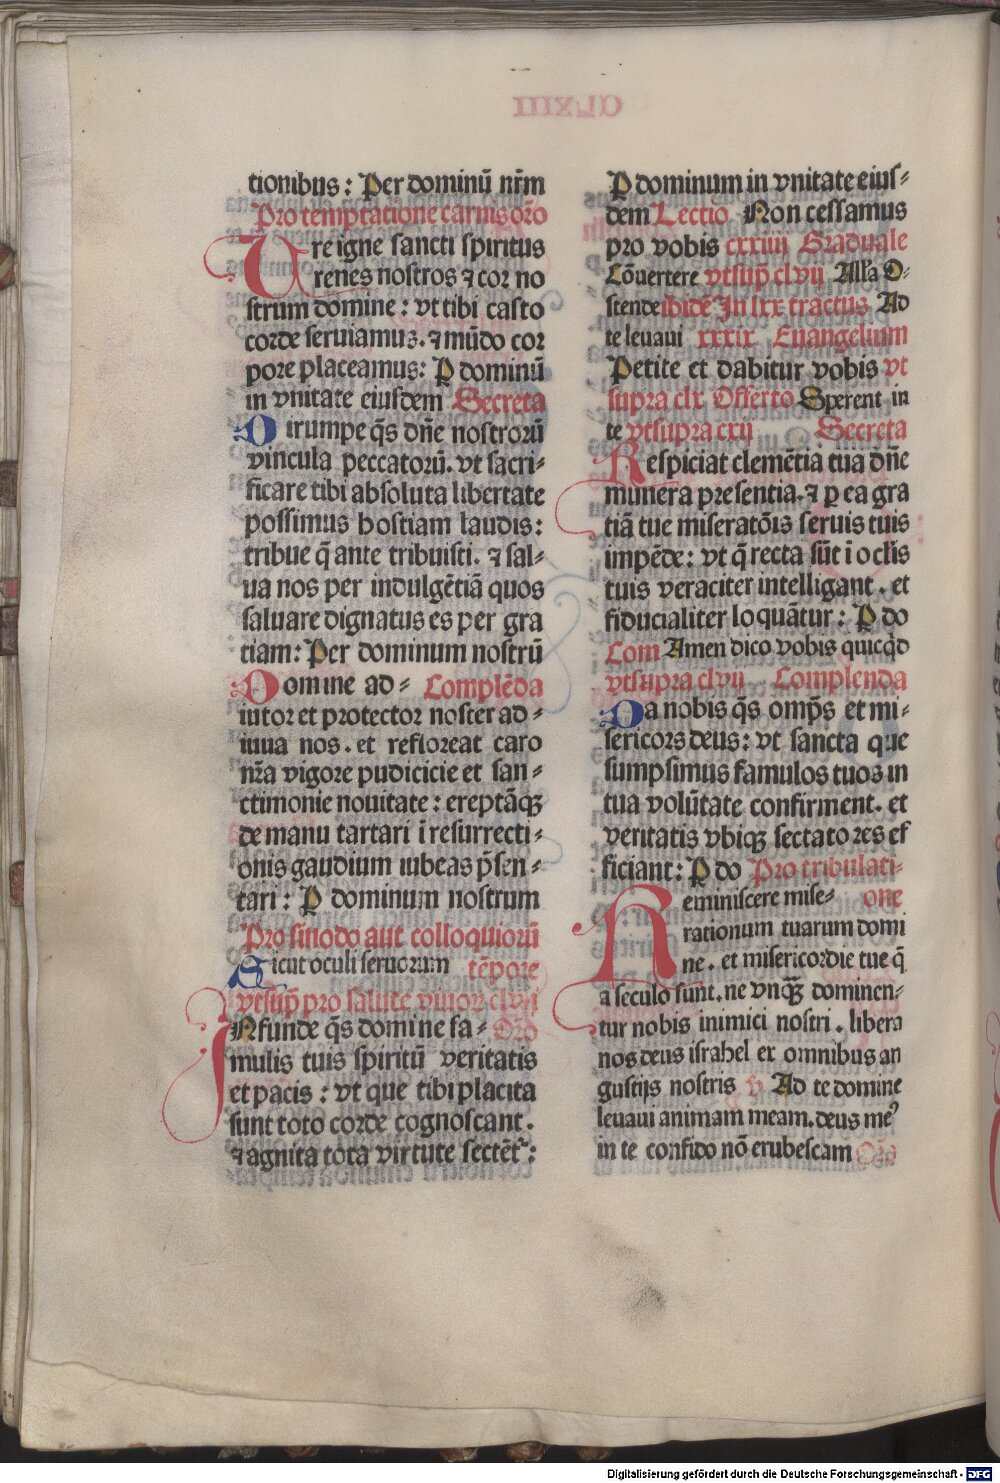 tionibus: Per dominū nr̄m
Pro temptatione carnis or̄o
Ure igne sancti spiritus
renes nostros ⁊ cor no
strum domine: vt tibi casto
corde seruiamus. ⁊ mūdo cor
pore placeamus: P dominū
in vnitate eiusdem Secreta
Dirumpe q̄s dn̄e nostrorū
vincula peccatorū. vt sacri-
ficare tibi absoluta libertate
possimus hostiam laudis:
tribue q̄ ante tribuisti. ⁊ sal-
ua nos per indulgētiā quos
saluare dignatus es per gra
tiam: Per dominum nostrū
Domine ad- Complēda
iutor et protector noster ad-
iuua nos. et refloreat caro
nr̄a vigore pudicicie et san-
ctimonie nouitate: ereptāqꝫ
de manu tartari ī resurrecti-
onis gaudium iubeas p̄sen-
tari: P dominum nostrum
Pro sinodo aut colloquiorū
Sicut oculi seruorum tēpore
vtsup̄ pro salute viuor clvij
Infunde q̄s domine fa- Or̄o
mulis tuis spiritū veritatis
et pacis: vt que tibi placita
sunt toto corde cognoscant.
⁊ agnita tota virtute sectēt᷑:
P dominum in vnitate eius-
dem Lectio Non cessamus
pro vobis cxxiiij Graduale
Cōuertere vtsup̄ clvij All'a O-
stende ibidē In lxx tractus Ad
te leuaui xxxix Euangelium
Petite et dabitur vobis vt
supra clx Offerto Sperent in
te vtsupra cxij Secreta
Respiciat clemētiā tuā dn̄e
munera presentia. ⁊ p ea gra
tiā tue miseratōis seruis tuis
impēde: vt q̄ recta sūt ī oclīs
tuis veraciter intelligant. et
fiducialiter loquātur: P do
Com Amen dico vobis quicq̇d
vtsupra clvij Complenda
Da nobis q̄s omp̄s et mi-
sericors deus: vt sancta que
sumpsimus famulos tuos in
tua volūtate confirment. et
veritatis vbiqꝫ sectatores ef
ficiant: P do Pro tribulati-
Reminiscere mise- one
rationum tuarum domi
ne. et misericordie tue q̄
a seculo sunt. ne vnqꝫ̄ dominen-
tur nobis inimici nostri. libera
nos deus israhel ex omnibus an
gustijs nostris v̄ Ad te domine
leuaui animam meam. deus meꝰ
in te confido nō erubescam Or̄o
Digitalisierung gefördert durch die Deutsche Forschungsgemeinschaft - DFG